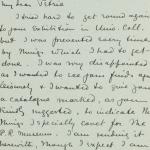 My dear Petrie
I tried hard to get round again
to your Exhibition in Univ. Coll.
but I was prevented every time
by things which I had to get
done. I was very disappointed
as I wanted to see your finds again
leisurely & I wanted to give you
a catalogue marked, as you
kindly suggested, to indicate the
things I specially covet for the
P.R. Museum. I am sending it
herewith, though I expect I am